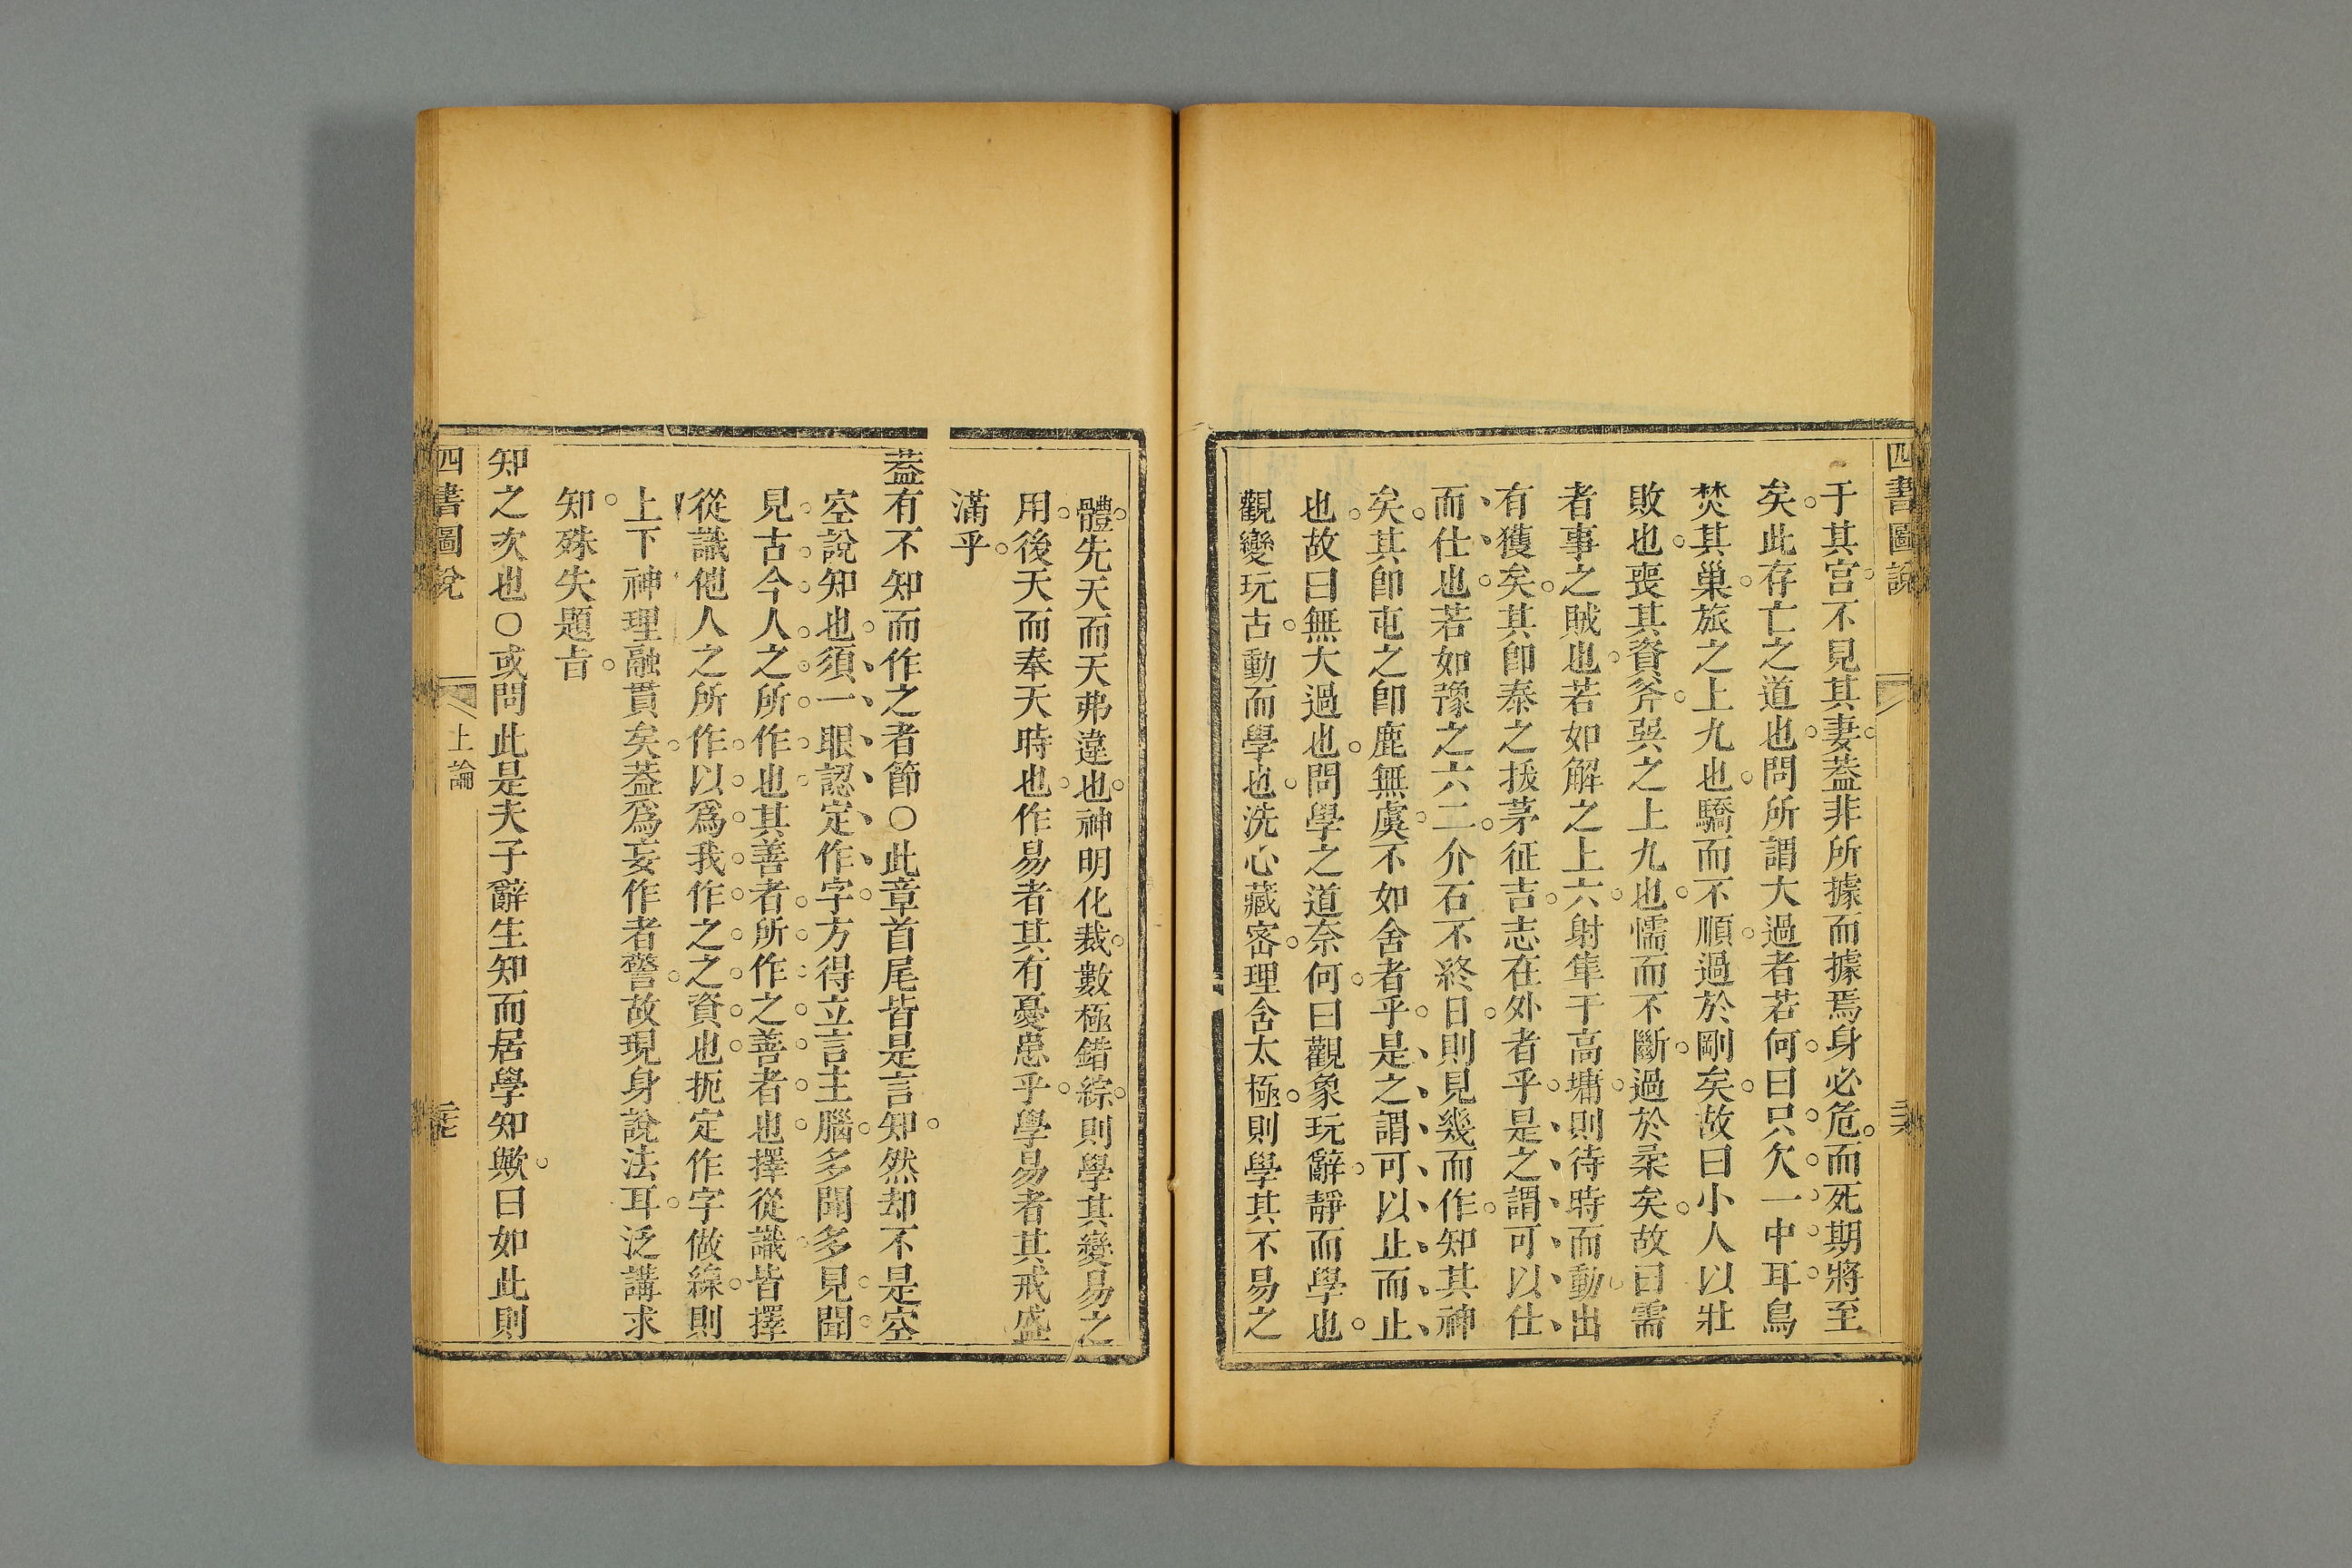 四書圖說
于其宫不見其妻葢非所據而據焉身必危而死期將至
矣此存亡之道也問所謂大過者若何曰只欠一中耳鳥
焚其巢旅之上九也驕而不順過於剛矣故曰小人以壯
敗也喪其資斧巽之上九也懦而不斷過於柔矣故曰需
者事之賊也若如解之上六射隼于高墉則待時而動出
有獲矣其卽泰之拔茅征吉志在外者乎是之謂可以仕
而仕也若如豫之六二介石不終日則見幾而作知其神
矣其卽屯之卽鹿無虞不如舍者乎是之謂可以止而止
也故曰無大過也問學之道奈何曰觀象玩辭靜而學也
觀變玩古動而學也洗心藏宻理舍太極則學其不易之
體先天而天弗違也神明化裁數極錯綜則學其變易之
用後天而奉天時也作易者其有憂患乎學易者其戒盛
滿乎
葢有不知而作之者節○此章首尾皆是言知然却不是空
空說知也須一眼認定作字方得立言主腦多聞多見聞
見古今人之所作也其善者所作之善者也擇從識皆擇
從識他人之所作以爲我作之之資也扼定作字做線則
上下神理融貫矣葢爲妄作者警故現身說法耳泛講求
知殊失題㫖
知之次也○或問此是夫子辭生知而居學知歟曰如此則
四書圖說
上論